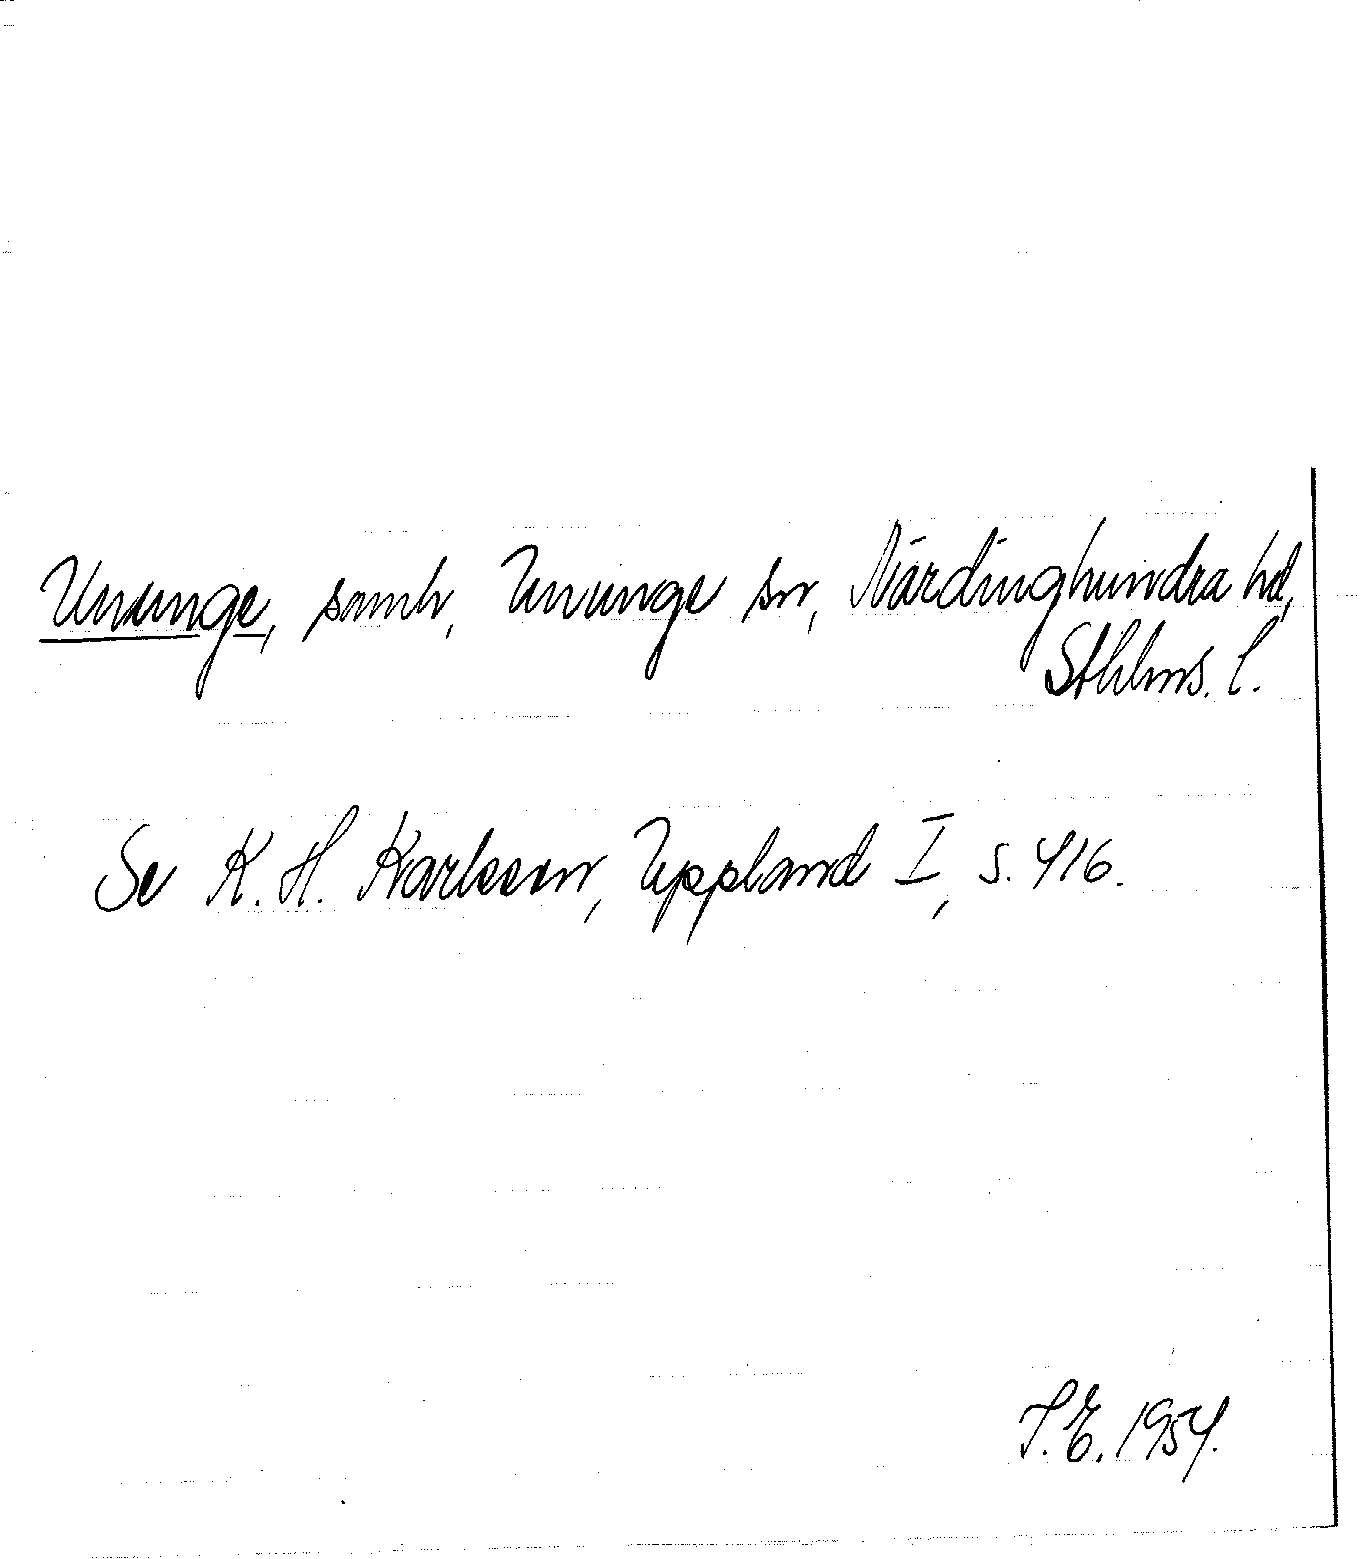 Ununge, samh, Ununge sn, Närdinghundra hd,
Sthlms. l.
Se K. H. Karlsson, Uppland I, s. 416.
T. E. 1954.